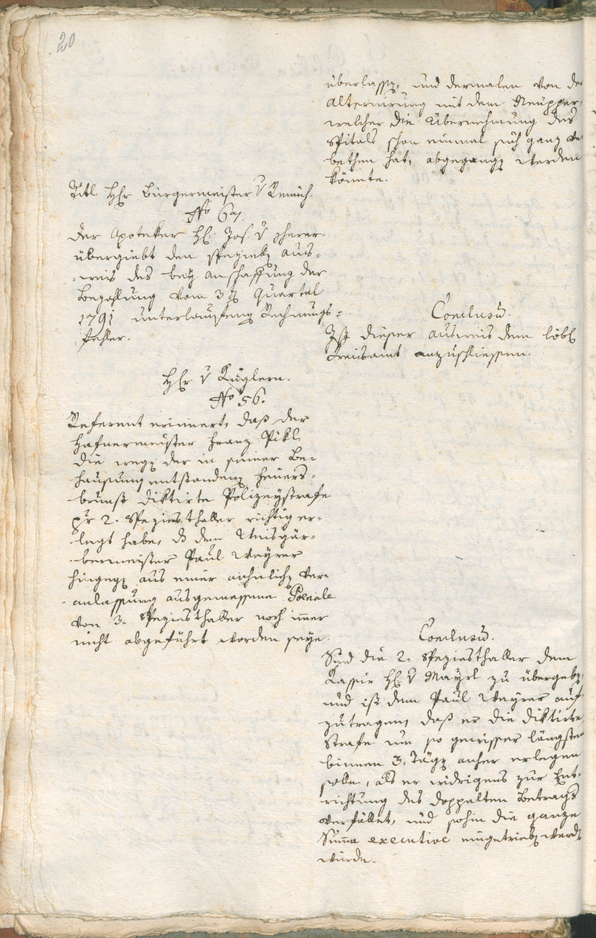 20
überlassen, und dermalen von der
Alternirung mit dem
welcher die Übernehmung des
Spitals schon einmal sich ganz ver
bethen hat, abgegangen werden
könnte.
Titl HHr Bürgermeister v
No 67.
Der Apoteker H: Jos: v
übergiebt den speziellen Aus-
weis des bey Anschaffung der
Bezahlung vom 3ten Quartal
1791 unterlaufenen Rechnungs-
fehler.
Conclusum.
Ist dieser Ausweis dem löbl:
Kreisamt anzuschliessen.
HHr v Kuglern.
No 56.
Referent erinnert, daß der
Hafnermeister Franz Pikl
die wegen der in seiner Be-
hausung entstandenen Feuers-
brunst diktirte Polizeystrafe
pr 2. Speziesthaller richtig er-
legt habe, dß dem Weisgär-
bermeister Paul Weyrer
hingegen aus einer ähnlichen Ver-
anlassung ausgemessene Poenale
von 3. Speziesthaller noch immer
nicht abgeführt worden seye.
Conclusum.
Sind die 2. Speziesthaller dem
Kassier H: v Mayrl zu übergeben,
und ist dem Paul Weyrer auf
zutragen, daß er die diktirte
Strafe um so gewisser längstens
binnen 3. Tägen anher erlegen
solle, als er widrigens zur Ent-
richtung des doppelten Betrags
verfället, und sohin die ganze
Summa executive eingetrieben werden
würde.